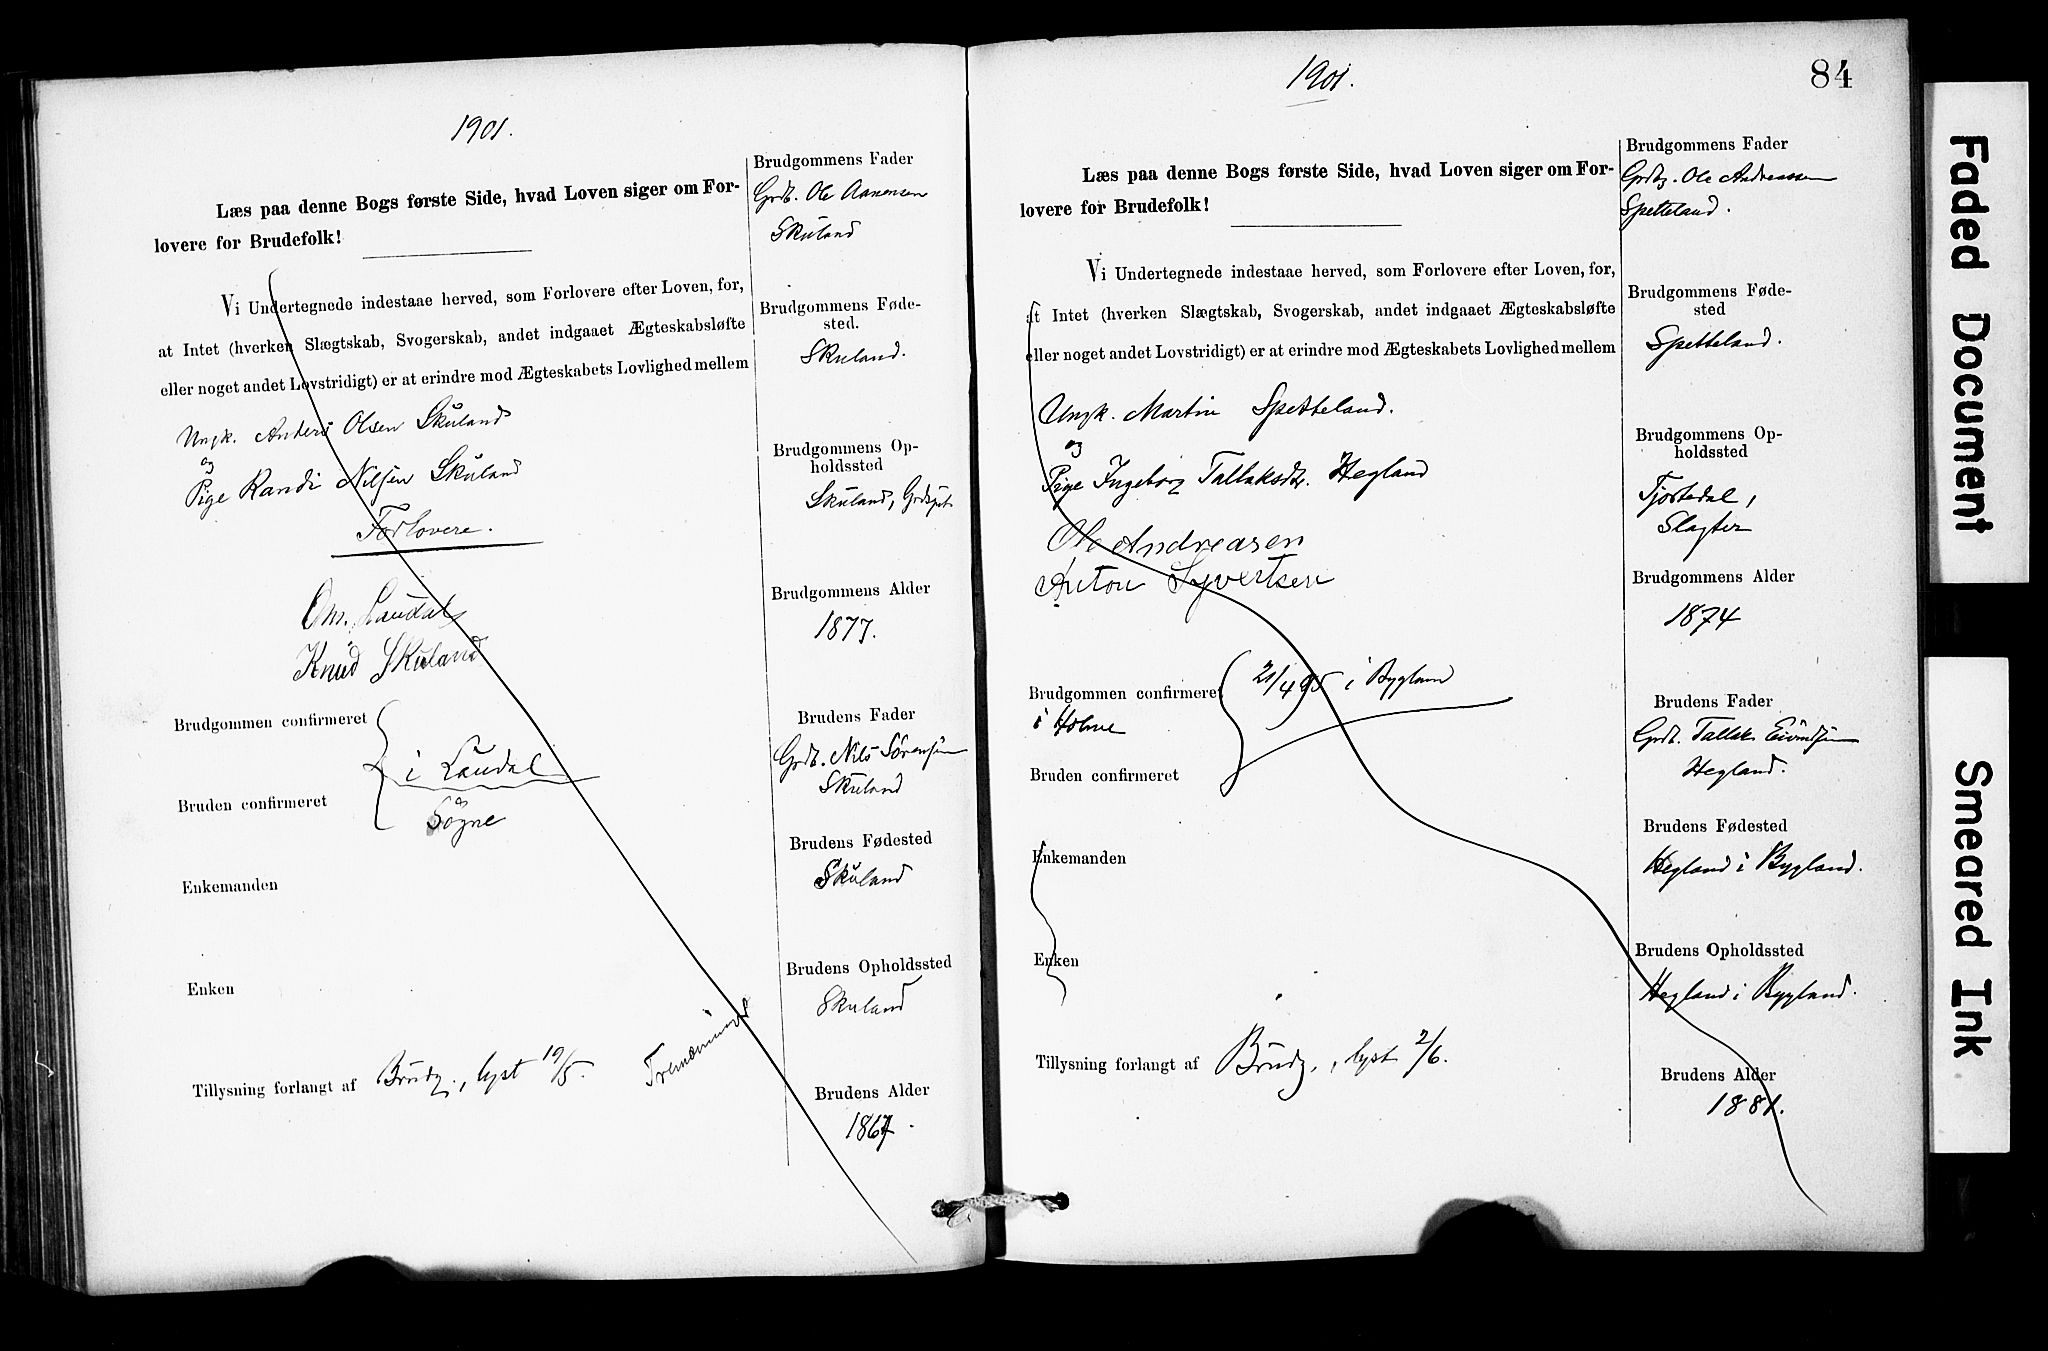 1901.
Læs paa denne Bogs første Side, hvad Loven siger om For-
lovere for Brudefolk!
Vi Undertegnede indestaae herved, som Forlovere efter Loven, for,
at Intet (hverken Slægtskab, Svogerskab, andet indgaaet Ægteskabsløfte
eller noget andet Lovstridigt) er at erindre mod Ægteskabets Lovlighed mellem
Ungk. Anders Olsen Skuland
og
Pige Randi Nilsen Skuland
Forlovere.
Om. Laudal
Knud Skuland
Brudgommen confirmeret
i Laudal
Bruden confirmeret
Søgne
Enkemanden
Enken
Tillysning forlangt af Brudg., lyst 19/5.
Brudgommens Fader
Grdb. Ole Aanensen
Skuland
Brudgommens Føde-
sted.
Skuland.
Brudgommens Op-
holdssted
Skuland,
Brudgommens Alder
1877.
Brudens Fader
Grdb. Nils Sørensen
Skuland
Brudens Fødested
Skuland
Brudens Opholdssted
Skuland
Brudens Alder
1901.
84
Læs paa denne Bogs første Side, hvad Loven siger om For-
lovere for Brudefolk!
Vi Undertegnede indestaae herved, som Forlovere efter Loven, for,
at Intet (hverken Slægtskab, Svogerskab, andet indgaaet Ægteskabsløfte
eller noget andet Lovstridigt) er at erindre mod Ægteskabets Lovlighed mellem
Ungk. Martin Spetteland.
og
Pige Ingeborg Tallaksdtr. Hegland
Ole Andreasen
Anton Syvertsen
Brudgommen confirmeret 21/4 95 i Bygland
i Holme
Bruden confirmeret
Enkemanden
Enken
Tillysning forlangt af Brudg., lyst 2/6.
Brudgommens Fader
Grdb. Ole Andreassen
Spetteland.
Brudgommens Føde-
sted
Spetteland.
Brudgommens Op-
holdssted
Tjortedal,
Slagter
Brudgommens Alder
1874
Brudens Fader
Grdb. Tallak Eivindsen
Hegland.
Brudens Fødested
Hegland i Bygland.
Brudens Opholdssted
Hegland i Bygland.
Brudens Alder
1881.
Faded Document
Smeared Ink